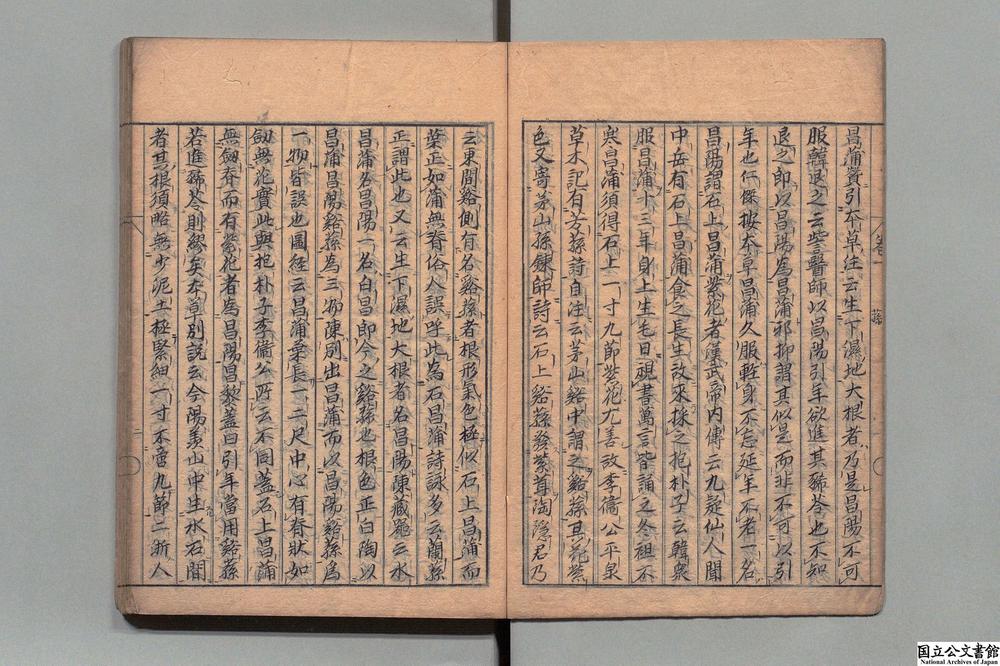 昌蒲黄引本草注云生下濕地大根者乃是昌陽不可
服韓退之云訾醫師以昌陽引年欲進其豨苓也不知
退之即以昌陽為昌蒲邪抑謂其似是而非不可以引
年也仁傑按本草昌蒲久服輕身不忘延年不老一名
昌陽謂石上昌蒲紫花者漢武帝内傳云九疑仙人聞
中岳有石上昌蒲食之長生故來採之抱朴子云韓衆
服昌蒲十三年身上生毛日視書萬言皆誦之冬袒不
寒昌蒲須得石上一寸九節紫花尤善故李衛公平泉
草木記有芳蓀詩自注云茅山谿中謂之谿蓀其花紫
色又寄茅山孫鍊師詩云石上谿蓀發紫茸陶隱君乃
云東閒谿側有名谿蓀者根形氣色極似石上昌蒲而
葉正如蒲無脊俗人誤呼此為石昌蒲詩詠多云蘭蓀
正謂此也又云生下濕地大根者名昌陽陳藏器云水
昌蒲名昌陽一名白昌即今之谿蓀也根色正白陶以
昌蒲昌陽谿蓀為三物陳別出昌蒲而以昌陽谿蓀為
一物皆誤也圖經云昌蒲葉長一二尺中心有脊狀如
劔無花實此與抱朴子李衛公所云不同蓋石上昌蒲
無劔脊而有紫花者為昌陽昌黎蓋曰引年當用谿蓀
若進豨苓則繆矣本草別說云今陽羨山中生水石間
者其根須略無少泥土極緊細一寸不啻九節二浙人
国立公文書館
National Archives of Japan